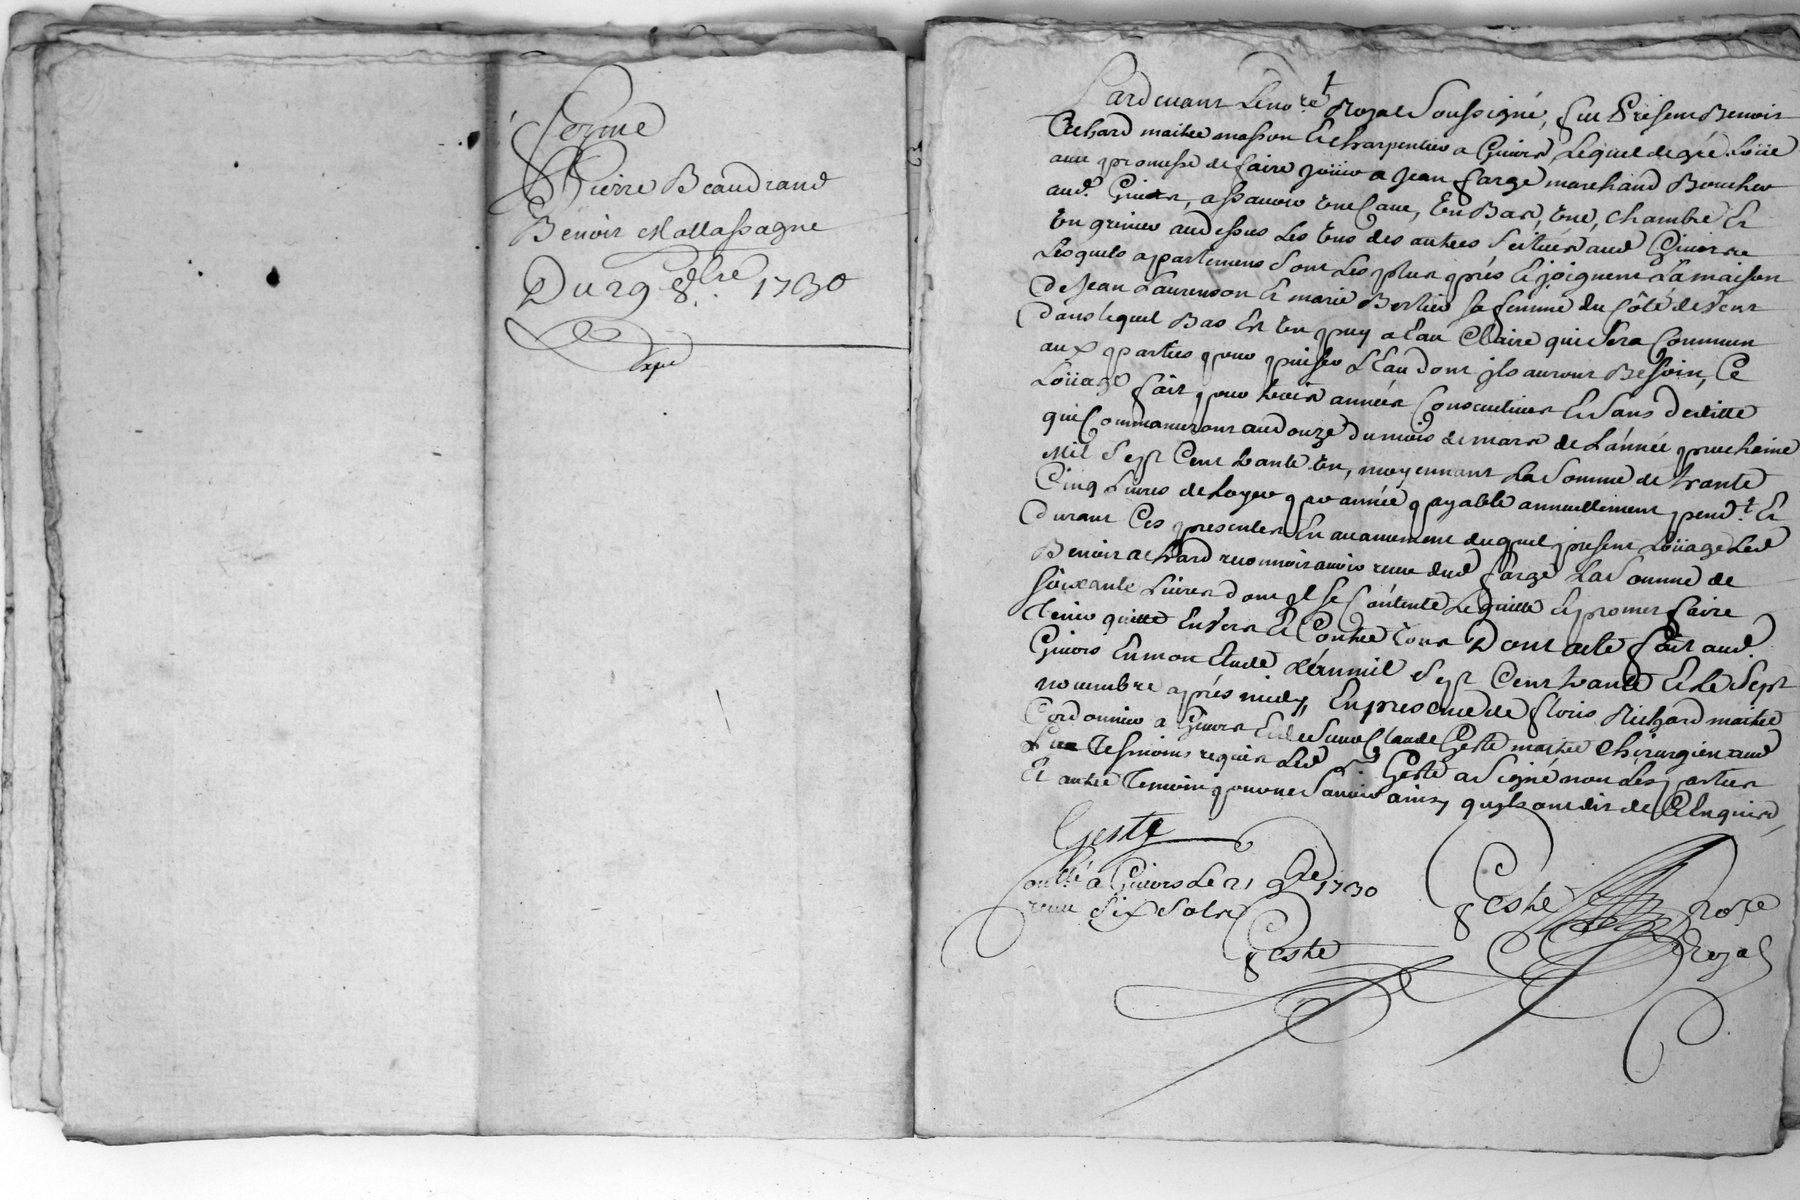 ferme
Pierre Beaudrand
Benoit Mallassagne
Du 29 8bre 1730
Expé
Pardevant Le nore Royal Soussigné, fut Present Benoit
Achard maitre masson Et charpentier a Givors, Lequel de gré Loüe
avec promesse de faire joüir a Jean farge marchand Boucher
aud. Givors, assavoir Une Cave, En Bas, Une, chambre Et
Un grenier audessus Les Uns des autres Scitués aud Givors
Lesquels appartemens Sont Les plus près Et joignent La maison
de Jean Laurenson Et marie Bertier sa femme du Côté de vent
dans lequel Bas Est Un puy a Eau Claire qui Sera Commun
aux parties pour puiser L'Eau dont jls auront Besoin, Ce
Loüage fait pour huit années Consecutives Et Sans deditte
qui Commanceront aud onze du mois de mars de L'année prochaine
Mil Sept Cent trante Un, moyennant La Somme de trante
Cinq Livres de Loyer par année payable annuellement pend.t Et
durant Ces presentes En avancement duquel present Loüage Led
Benoit achard reconnoit avoir receu dud farge La Somme de
soixante Livres dont jl se Contente Le quitte Et promet faire
tenir quitte Envers Et Contre tous Dont acte fait aud.
Givors En mon Etude L'an mil Sept Cent trante Et Le Sept
novembre après midy, En presence de floris Richard maitre
Cordonnier a Givors Et de Sieur Claude Geste maitre chirurgien aud
Lieu Tesmoins requis Led Sr. Geste a Signé non Les parties
Et autre Temoin pour ne Sçavoir ainsy qu'ils ont dit de Ce Enquis,
Geste
Conllé a Givors Le 21 9bre 1730
receu Six Sols
Geste
Geste
nore
Royal